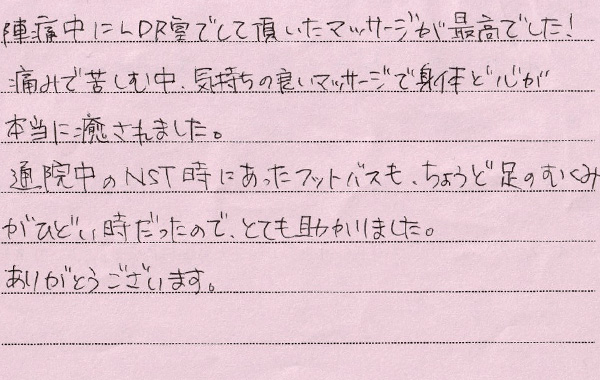 陣痛中にLDR室でして頂いたマッサージが最高でした!
痛みで苦しむ中、気持ちの良いマッサージで身体と心が
本当に癒されました。
通院中のNST時にあったフットバスも、ちょうど足のむくみ
がひどい時だったので、とても助かりました。
ありがとうございます。